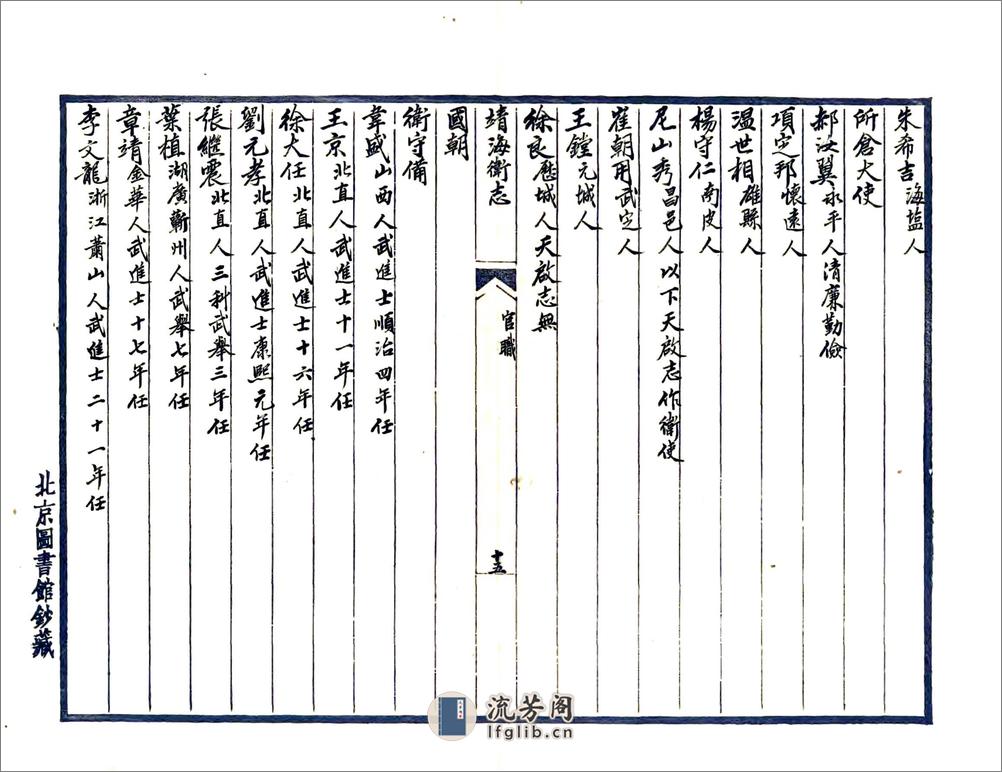 朱希吉海鹽人
所倉大使
郝汝翼永平人清廉勤儉
項定邦懷遠人
溫世相雄縣人
楊守仁南皮人
尼山秀昌邑人以下天啟志作衛使
崔朝用武定人
王鏜元城人
徐良歷城人天啟志無
靖海衛志
官職
十五
國朝
衛守備
韋盛山西人武進士順治四年任
王京北直人武進士十一年任
徐大任北直人武進士十六年任
劉元孝北直人武進士康熙元年任
張繼震北直人三科武舉三年任
葉植湖廣蘄州人武舉七年任
章靖金華人武進士十七年任
李文龍浙江蕭山人武進士二十一年任
北京圖書館鈔藏
流芳阁
lfglib.cn